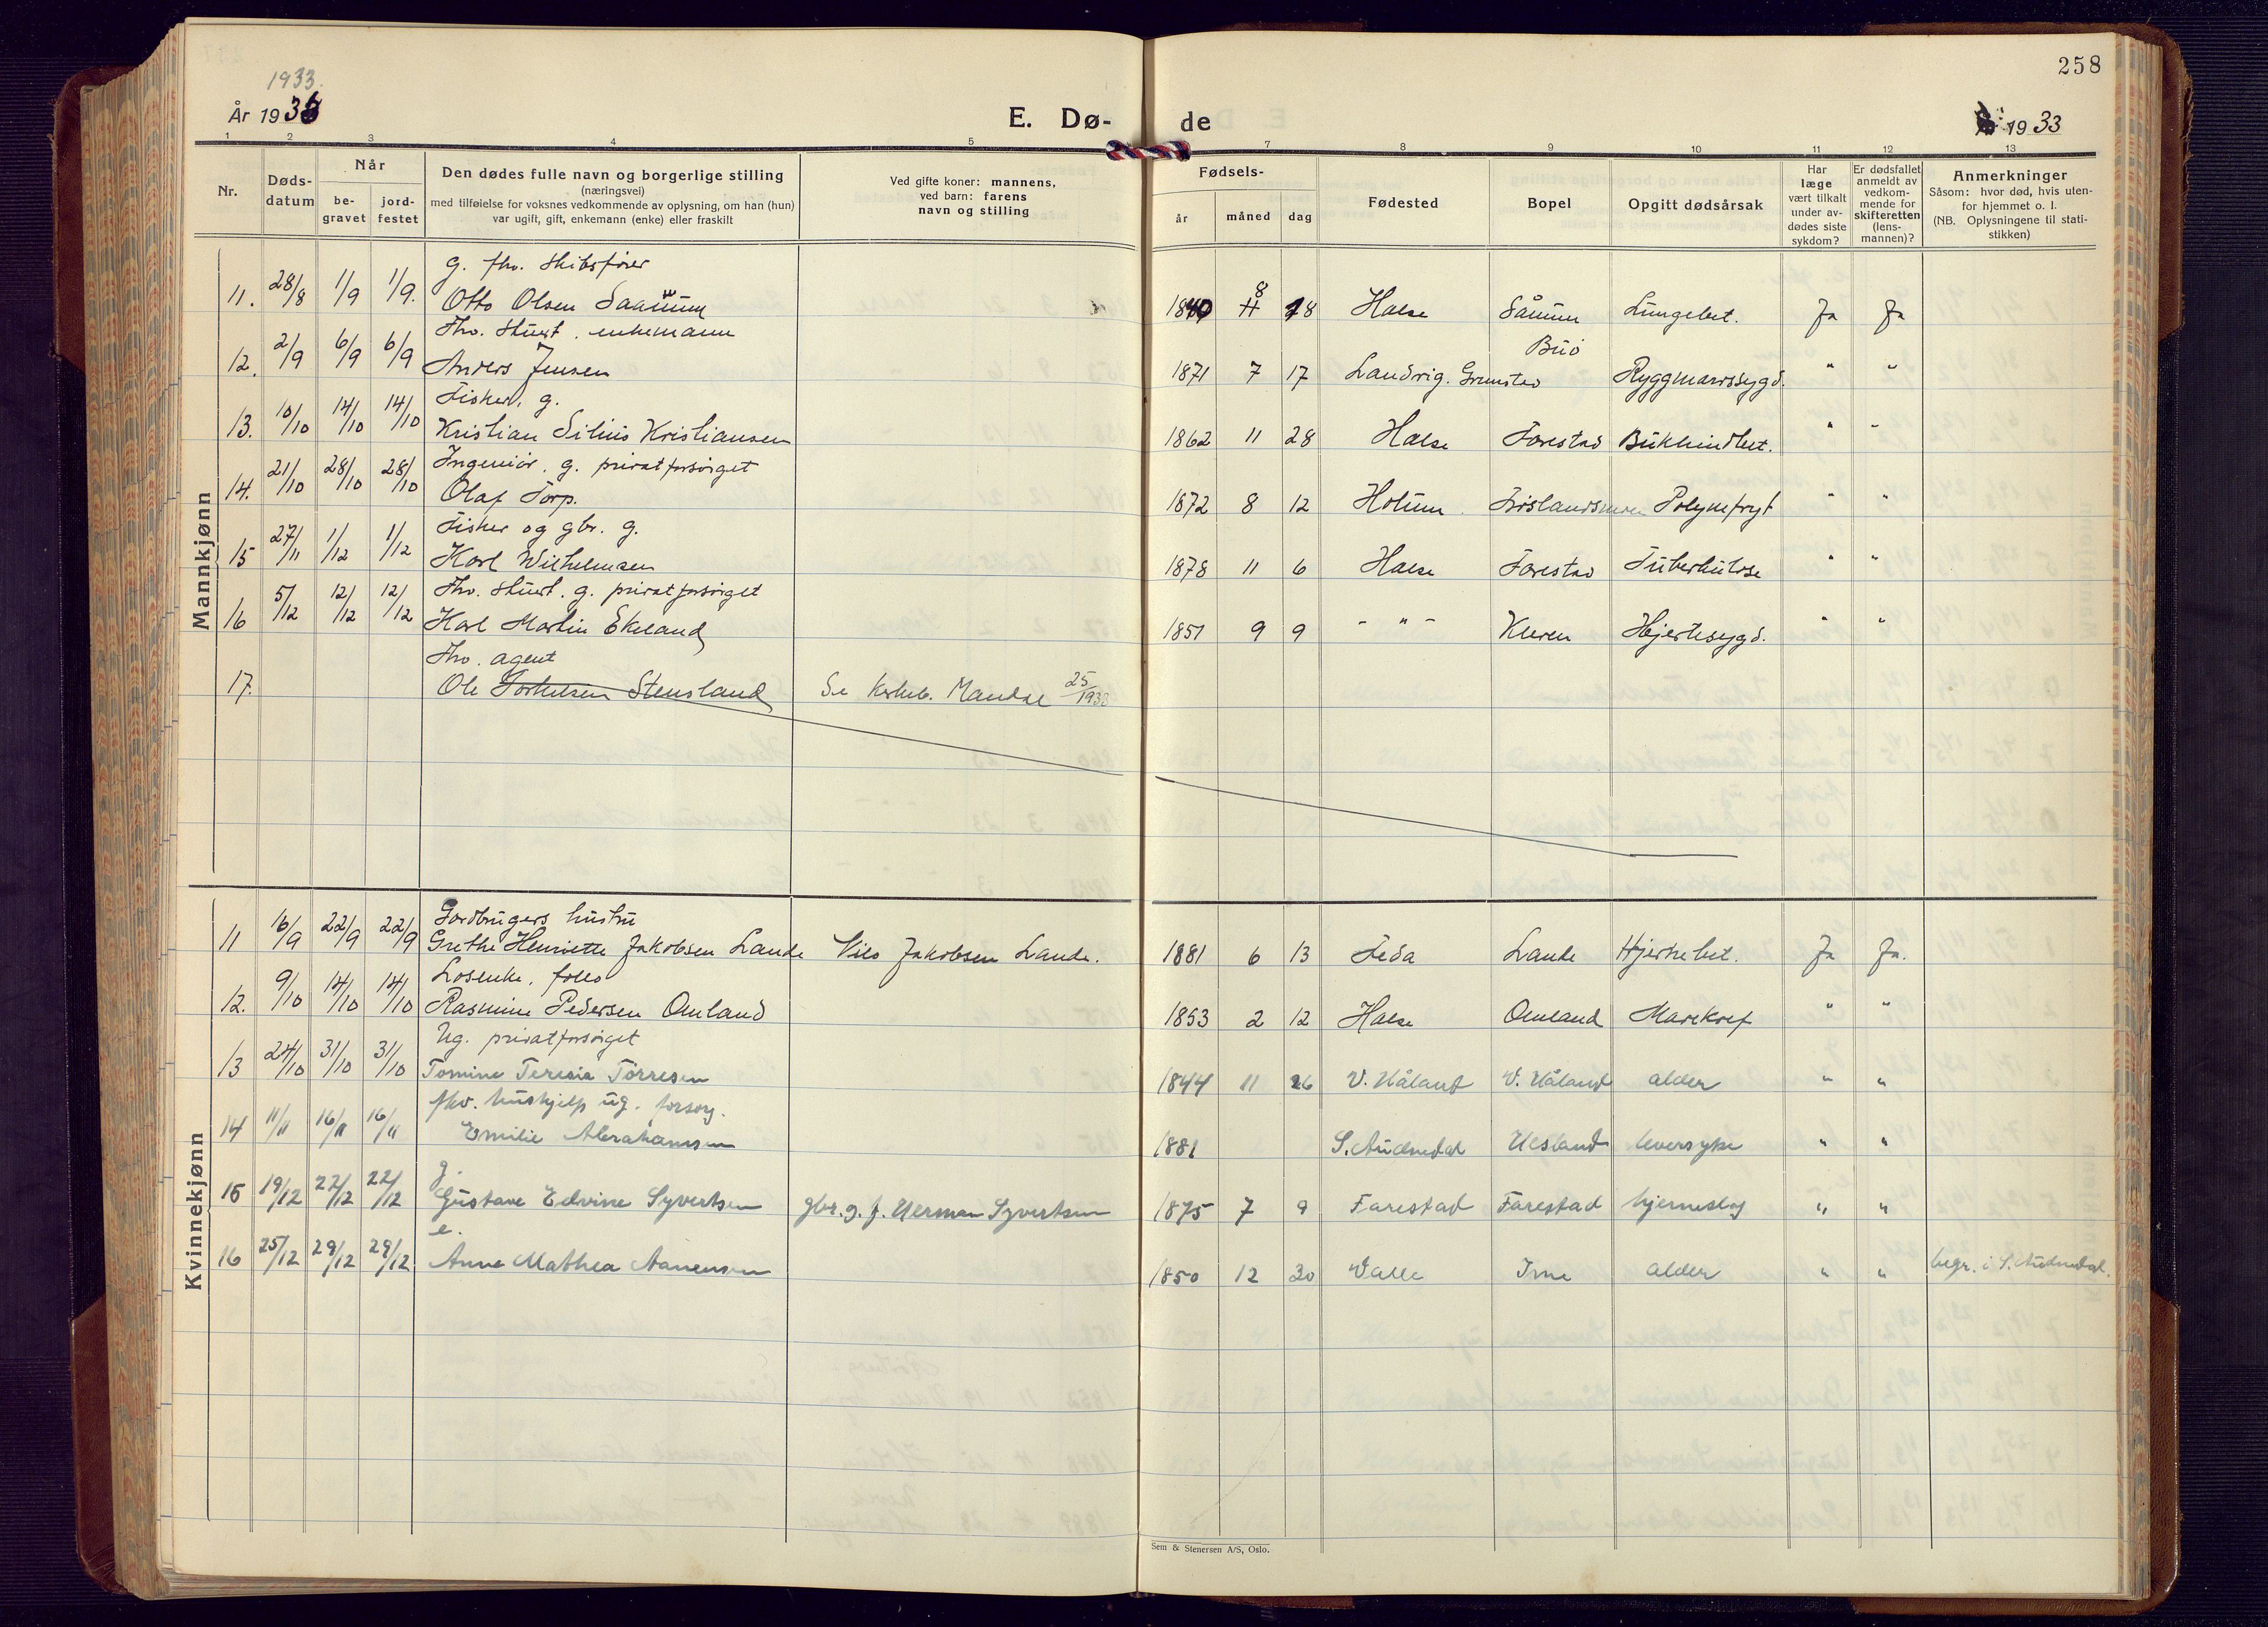 258
1933.
År 1933
E. Dø-
de
19 33
1 2 3 4 5 7 8 9 10 11 12 13
Nr.
Døds-
datum
Når
be-
gravet
jord-
festet
Den dødes fulle navn og borgerlige stilling
(næringsvei)
med tilføielse for voksnes vedkommende av oplysning, om han (hun)
var ugift, gift, enkemann (enke) eller fraskilt
Ved gifte koner: mannens,
ved barn: farens
navn og stilling
Fødsels-
år
måned
dag
Fødested
Bopel
Opgitt dødsårsak
Har
læge
vært tilkalt
under av-
dødes siste
sykdom?
Er dødsfallet
anmeldt av
vedkom-
mende for
skifteretten
(lens-
mannen)?
Anmerkninger
Såsom: hvor død, hvis uten-
for hjemmet o. l.
(NB. Oplysningene til stati-
stikken)
Mannkjønn
g. fhv. skibsfører
11. 28/8 1/9 1/9. Otto Olsen Saanum 1840 8 18 Halse Sånum Lungebet. Ja Ja
Fhv. skuest. enkemann
12. 2/9 6/9 6/9 Anders Jensen 1871 7 17 Landvig. Grimstad Buø Ryggmarvssygd. " "
Fisker, g.
13. 10/10 14/10 14/10 Kristian Silius Kristiansen 1862 11 28 Halse Farestad Bukhindbet. " "
Ingeniør. g. privatforsørget
14. 21/10 28/10 28/10 Olaf Torp. 1872 8 12 Holum Frøslandsmoen " "
Fisker og gbr. g.
15 27/11 1/12 1/12 Karl Wilhelmsen 1878 11 6 Halse Farestad Tuberkulose " "
Fhv. skuest. g. privatforsørget
16 5/12 12/12 12/12 Karl Martin Ekeland 1851 9 9 - " - Kleven Hjertesygd. " "
Fhv. agent
17. Ole Torkelsen Stensland Se kirkeb. Mandal 25/1933
Kvinnekjønn
Gardbrugers hustru
11 16/9 22/9 22/9 Grethe Henriette Jakobsen Lande Nils Jakobsen Lande. 1881 6 13 Feda Lande Hjertebet. Ja Ja.
Losenke, fold
12. 9/10 14/10 14/10 Rasmine Pedersen Omland 1853 2 12 Halse Omland Mavekref " "
Ug. privatforsørget
13 24/10 31/10 31/10 Tomine Teresia Tørresen 1844 11 26 V. Håland V. Håland alder " "
fhv. hushjelp ug. forsorg.
14 11/11 16/11 16/11 Emilie Abrahamsen 1881 S. Audnedal Ulsland leversyke " "
g.
15 19/12 22/12 22/12 Gustave Edvine Syvertsen gbr. g. f. Herman Syvertsen 1875 7 9 Farestad Farestad hjerneslag " "
e.
16 25/12 29/12 29/12 Anne Mathea Aanensen 1850 12 30 Valle Ime alder " " begr. i S. Audnedal.
Sem & Stenersen A/S, Oslo.